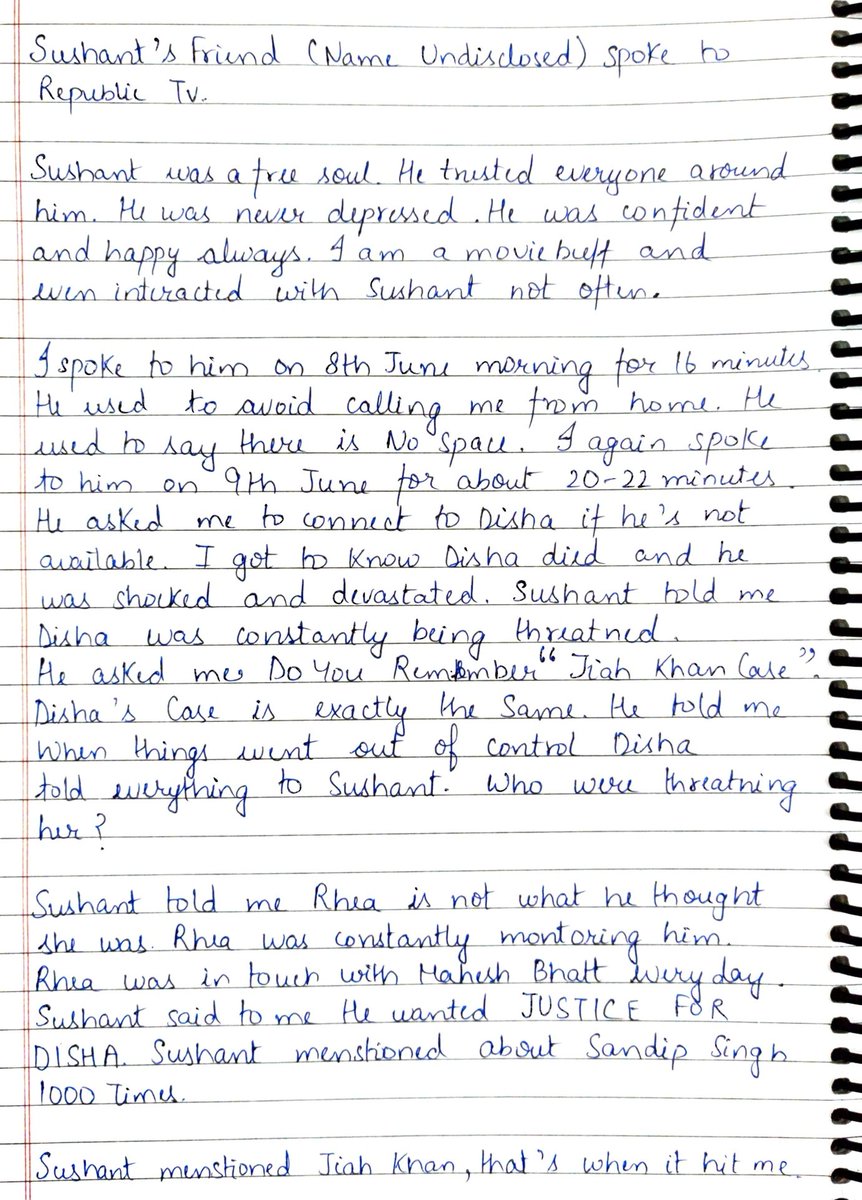 Sushant's Friend (Name Undisclosed) spoke to
Republic Tv.
Sushant was a free soul. He trusted everyone around
him. He was never depressed. He was confident
and happy always. I am a movie buff and
even interacted with Sushant not often.
I spoke to him on 8th June morning for 16 minutes.
He used to avoid calling me from home. He
used to say there is No space. I again spoke
to him on 9th June for about 20-22 minutes.
He asked me to connect to Disha if he's not
available. I got to know Disha died and he
was shocked and devastated. Sushant told me
Disha was constantly being threatned.
He asked me, Do You Remember "Jiah Khan Case".
Disha's Case is exactly the Same. He told me
When things went out of control Disha
told everything to Sushant. Who were threatning
her?
Sushant told me Rhea is not what he thought
she was. Rhea was constantly montoring him.
Rhea was in touch with Mahesh Bhatt every day.
Sushant said to me He wanted JUSTICE FOR
DISHA. Sushant menstioned about Sandip Singh
1000 Times.
Sushant menstioned Jiah Khan, that's when it hit me.